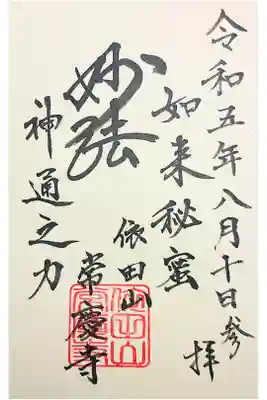 令和五年八月十日参拝
如来秘蜜
妙法
神通之力
依田山
常慶寺